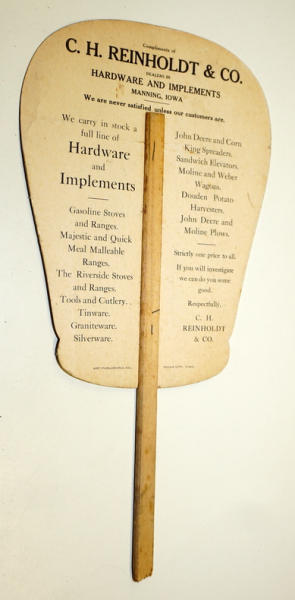 Compliments of
C. H. REINHOLDT & CO.
DEALERS IN
HARDWARE AND IMPLEMENTS
MANNING, IOWA
We are never satisfied unless our customers are.
We carry in stock a
full line of
Hardware
and
Implements
Gasoline Stoves
and Ranges.
Majestic and Quick
Meal Malleable
Ranges.
The Riverside Stoves
and Ranges.
Tools and Cutlery.
Tinware.
Graniteware.
Silverware.
John Deere and Corn
King Spreaders.
Sandwich Elevators.
Moline and Weber
Wagons.
Douden Potato
Harvesters.
John Deere and
Moline Plows.
Strictly one price to all.
If you will investigate
we can do you some
good.
Respectfully,
C. H.
REINHOLDT
& CO.